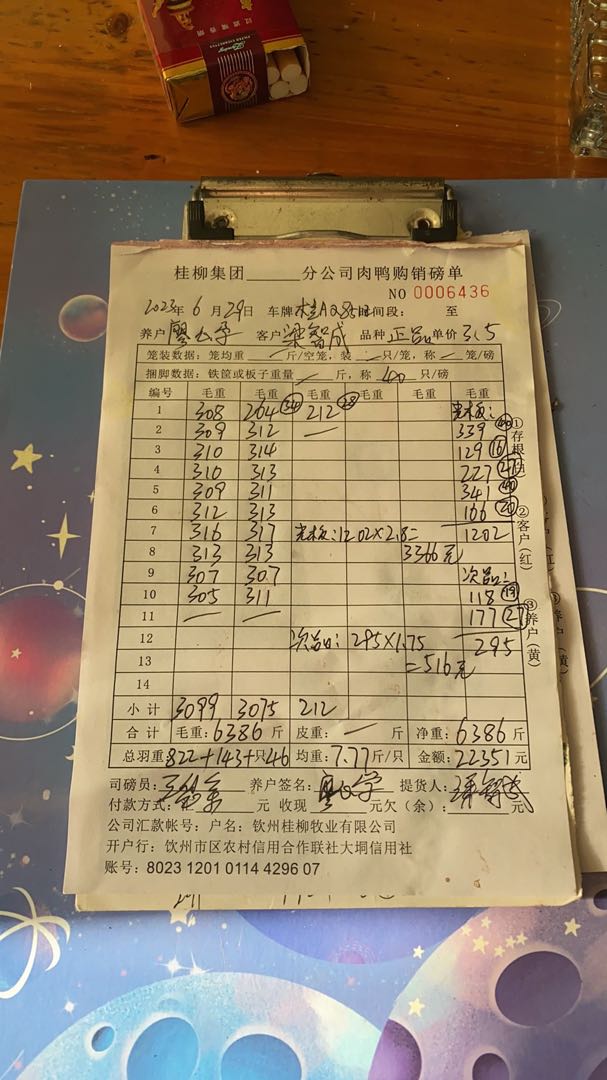 桂柳集团______分公司肉鸭购销磅单
NO 0006436
2023年 6 月 29日 车牌 桂A 时间段: 至
养户 客户 梁智成 品种 正品 单价 3.5
笼装数据: 笼均重 — 斤/空笼, 装 — 只/笼, 称 — 笼/磅
捆脚数据: 铁筐或板子重量 — 斤, 称 40 只/磅
编号 毛重 毛重 毛重 毛重 毛重 毛重
1 308 264 34 212 28 光板:
2 309 312 — 339 40
3 310 314 129 16
4 310 313 227 27
5 309 311 341 40
6 312 313 166 20
7 316 317 光板:1202×2.8= 1202
8 313 313 3366元
9 307 307 次品:
10 305 311 118 19
11 — — 177 27
12 次品: 295×1.75 295
13 =516元
14
小计 3099 3075 212
合计 毛重: 6386 斤 皮重: — 斤 净重: 6386 斤
总羽重: 822+143+只46 均重: 7.77斤/只 金额: 22351元
司磅员: 养户签名: 提货人:
付款方式: 元 收现 元欠(余): 元
公司汇款帐号: 户名: 钦州桂柳牧业有限公司
开户行: 钦州市区农村信用合作联社大垌信用社
账号: 8023 1201 0114 4296 07
①存根(白)
②客户(红)
③养户(黄)